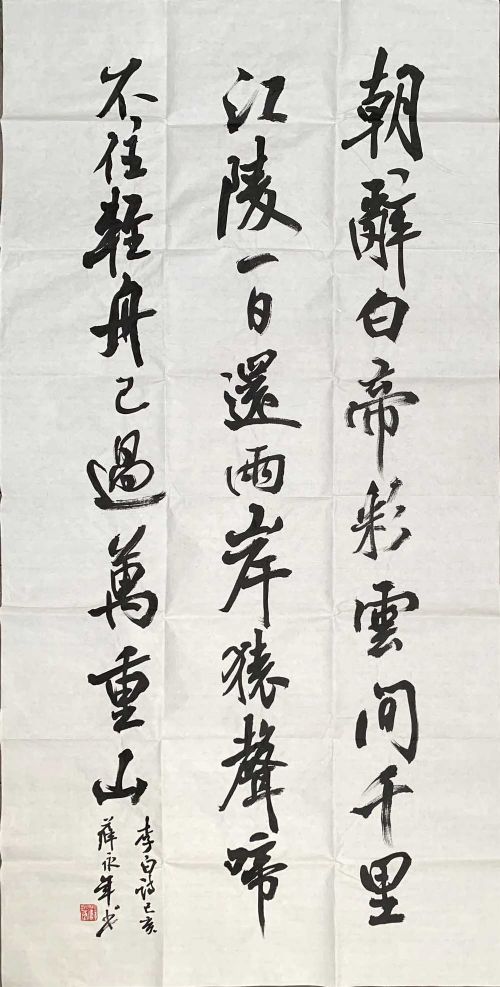 朝辭白帝彩雲間千里
江陵一日還兩岸猿聲啼
不住輕舟已過萬重山
李白詩己亥
薛永年书